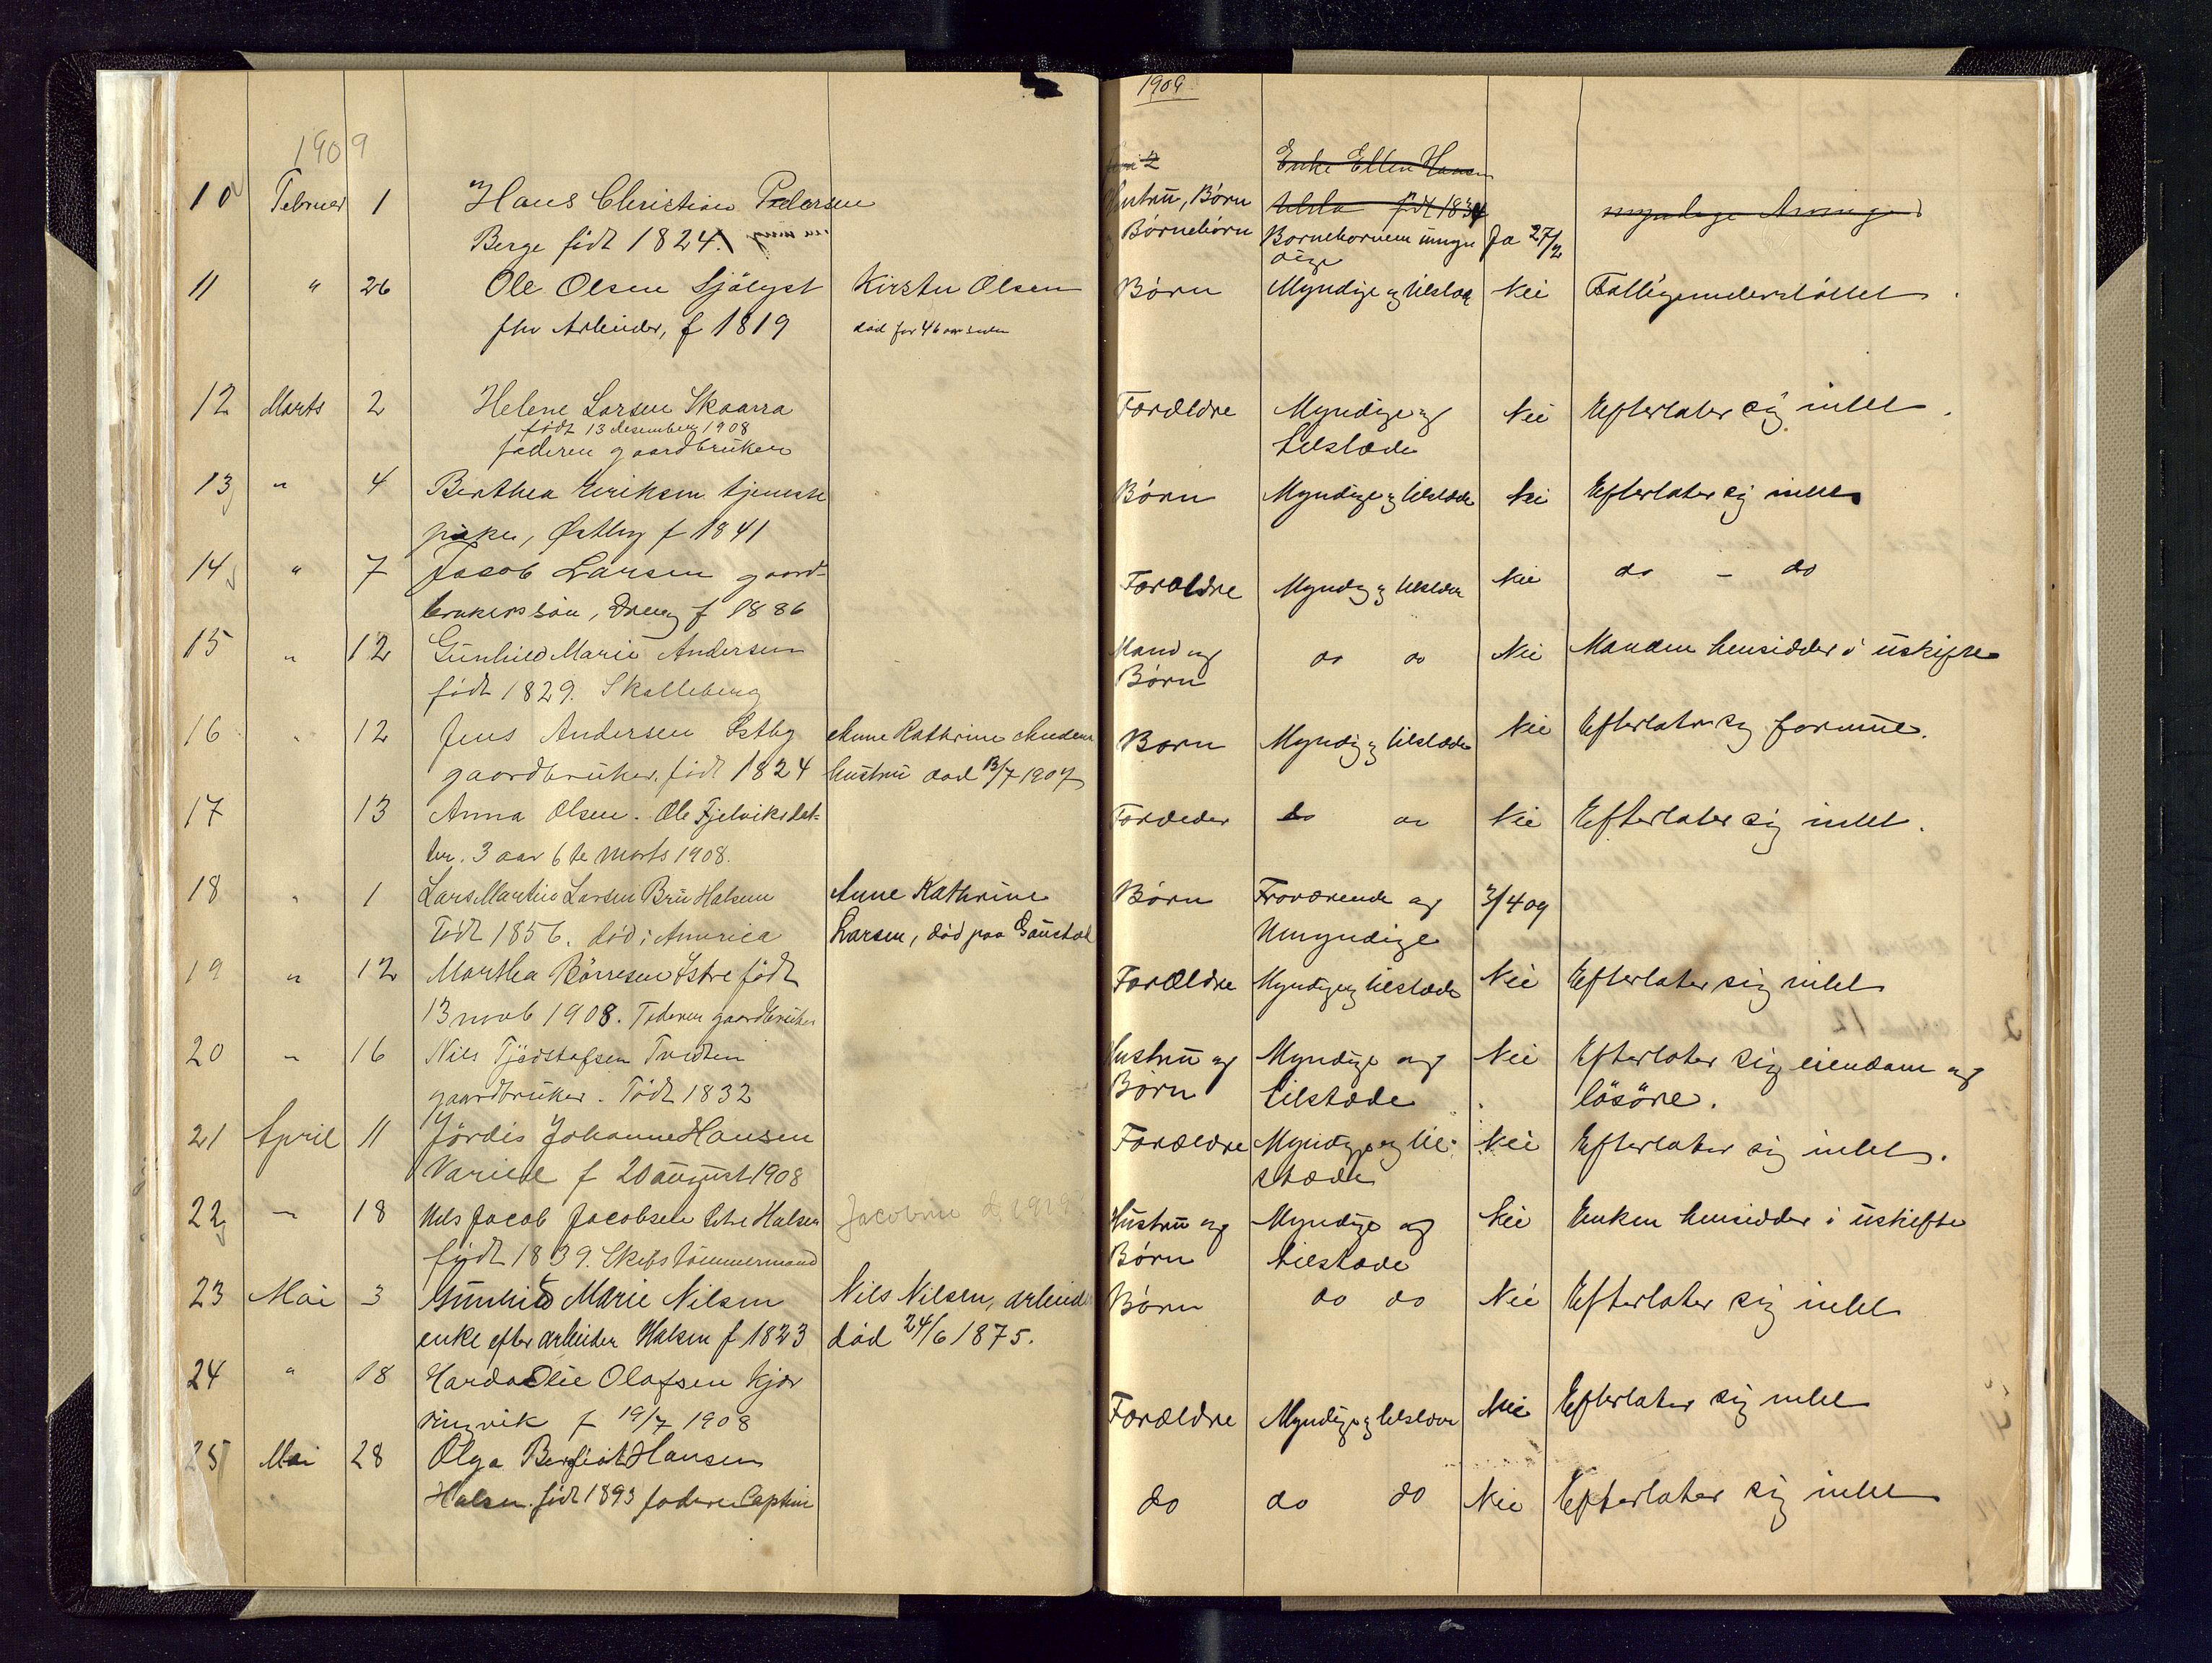 1909
1909
10 Februar 1 Hans Christian Pedersen Hustru, Børn Enke Ellen Hansen
født 1834 myndige Arvinger
Berge født 1824. Børnebørn Børnebørnene umyn Ja 27/2
dige
11 " 26 Ole Olsen Sjølyst Kirsten Olsen Børn Myndige og tilstæde Nei Fattigunderstøttet
fhv Arbeider, f 1819 død for 46 aar siden
12 Marts 2 Helene Larsen Skaarra Forældre Myndige og Nei Efterlater sig intet.
født 13 desember 1908 tilstæde
faderen gaardbruker
13 " 4 Berthea Eriksen tjeneste Børn Myndige og tilstæde Nei Efterlater sig intet
pike, Østby f 1841
14 " 7 Jacob Larsen gaard- Forældre Myndig og tilstæde Nei do - do
brukerssøn, Dreng f 1886
15 " 12 Gunhild Marie Andersen Mand og do do Nei Manden hensidder i uskifte
født 1829. Skalleberg Børn
16 " 12 Jens Andersen Østby Anne Kathrine Andersen Børn Myndig og tilstæde Nei Efterlater sig formue.
gaardbruker, født 1824 hustru død 13/7 1907
17 13 Anna Olsen. Ole Fjelviks dat- Forælder do do Nei Efterlater sig intet.
ter. 3 aar 6te Marts 1908.
18 " 1 Lars Martin Larsen Bru Halsen Anne Kathrine Børn Fraværende og 3/4 09
Født 1856. død i America Larsen, død paa Gaustad Umyndige
19 " 12 Martha Børresen Istre født Forældre Myndige og tilstæde Nei Efterlater sig intet
13 novb 1908. Faderen gaardbruker
20 " 16 Nils Fjødstafsen Tvedten Hustru og Myndige og Nei Efterlater sig eiendom og
gaardbruker. Født 1832 Børn tilstæde løsøre.
21 April 11 Hjørdis Johanne Hansen Forældre Myndige og til- Nei Efterlater sig intet.
Varild f 20 august 1908 stæde
22 " 18 Nils Jacob Jacobsen Istre Halsen Jacobine d. 1919 Hustru og Myndige og Nei Enken hensidder i uskifte
født 1839. Skibstømmermand Børn tilstæde
23 Mai 3 Gunhild Marie Nilsen Nils Nilsen, arbeider Børn do do Nei Efterlater sig intet
enke efter arbeider Halsen f 1823 død 24/6 1875.
24 " 18 Harda Olie Olafsen Kjær Forældre Myndige og tilstæde Nei Efterlater sig intet
ringvik f 19/7 1908
25 Mai 28 Olga Bergliot Hansen do do do Nei Efterlater sig intet
Halsen. født 1893 faderen Captein